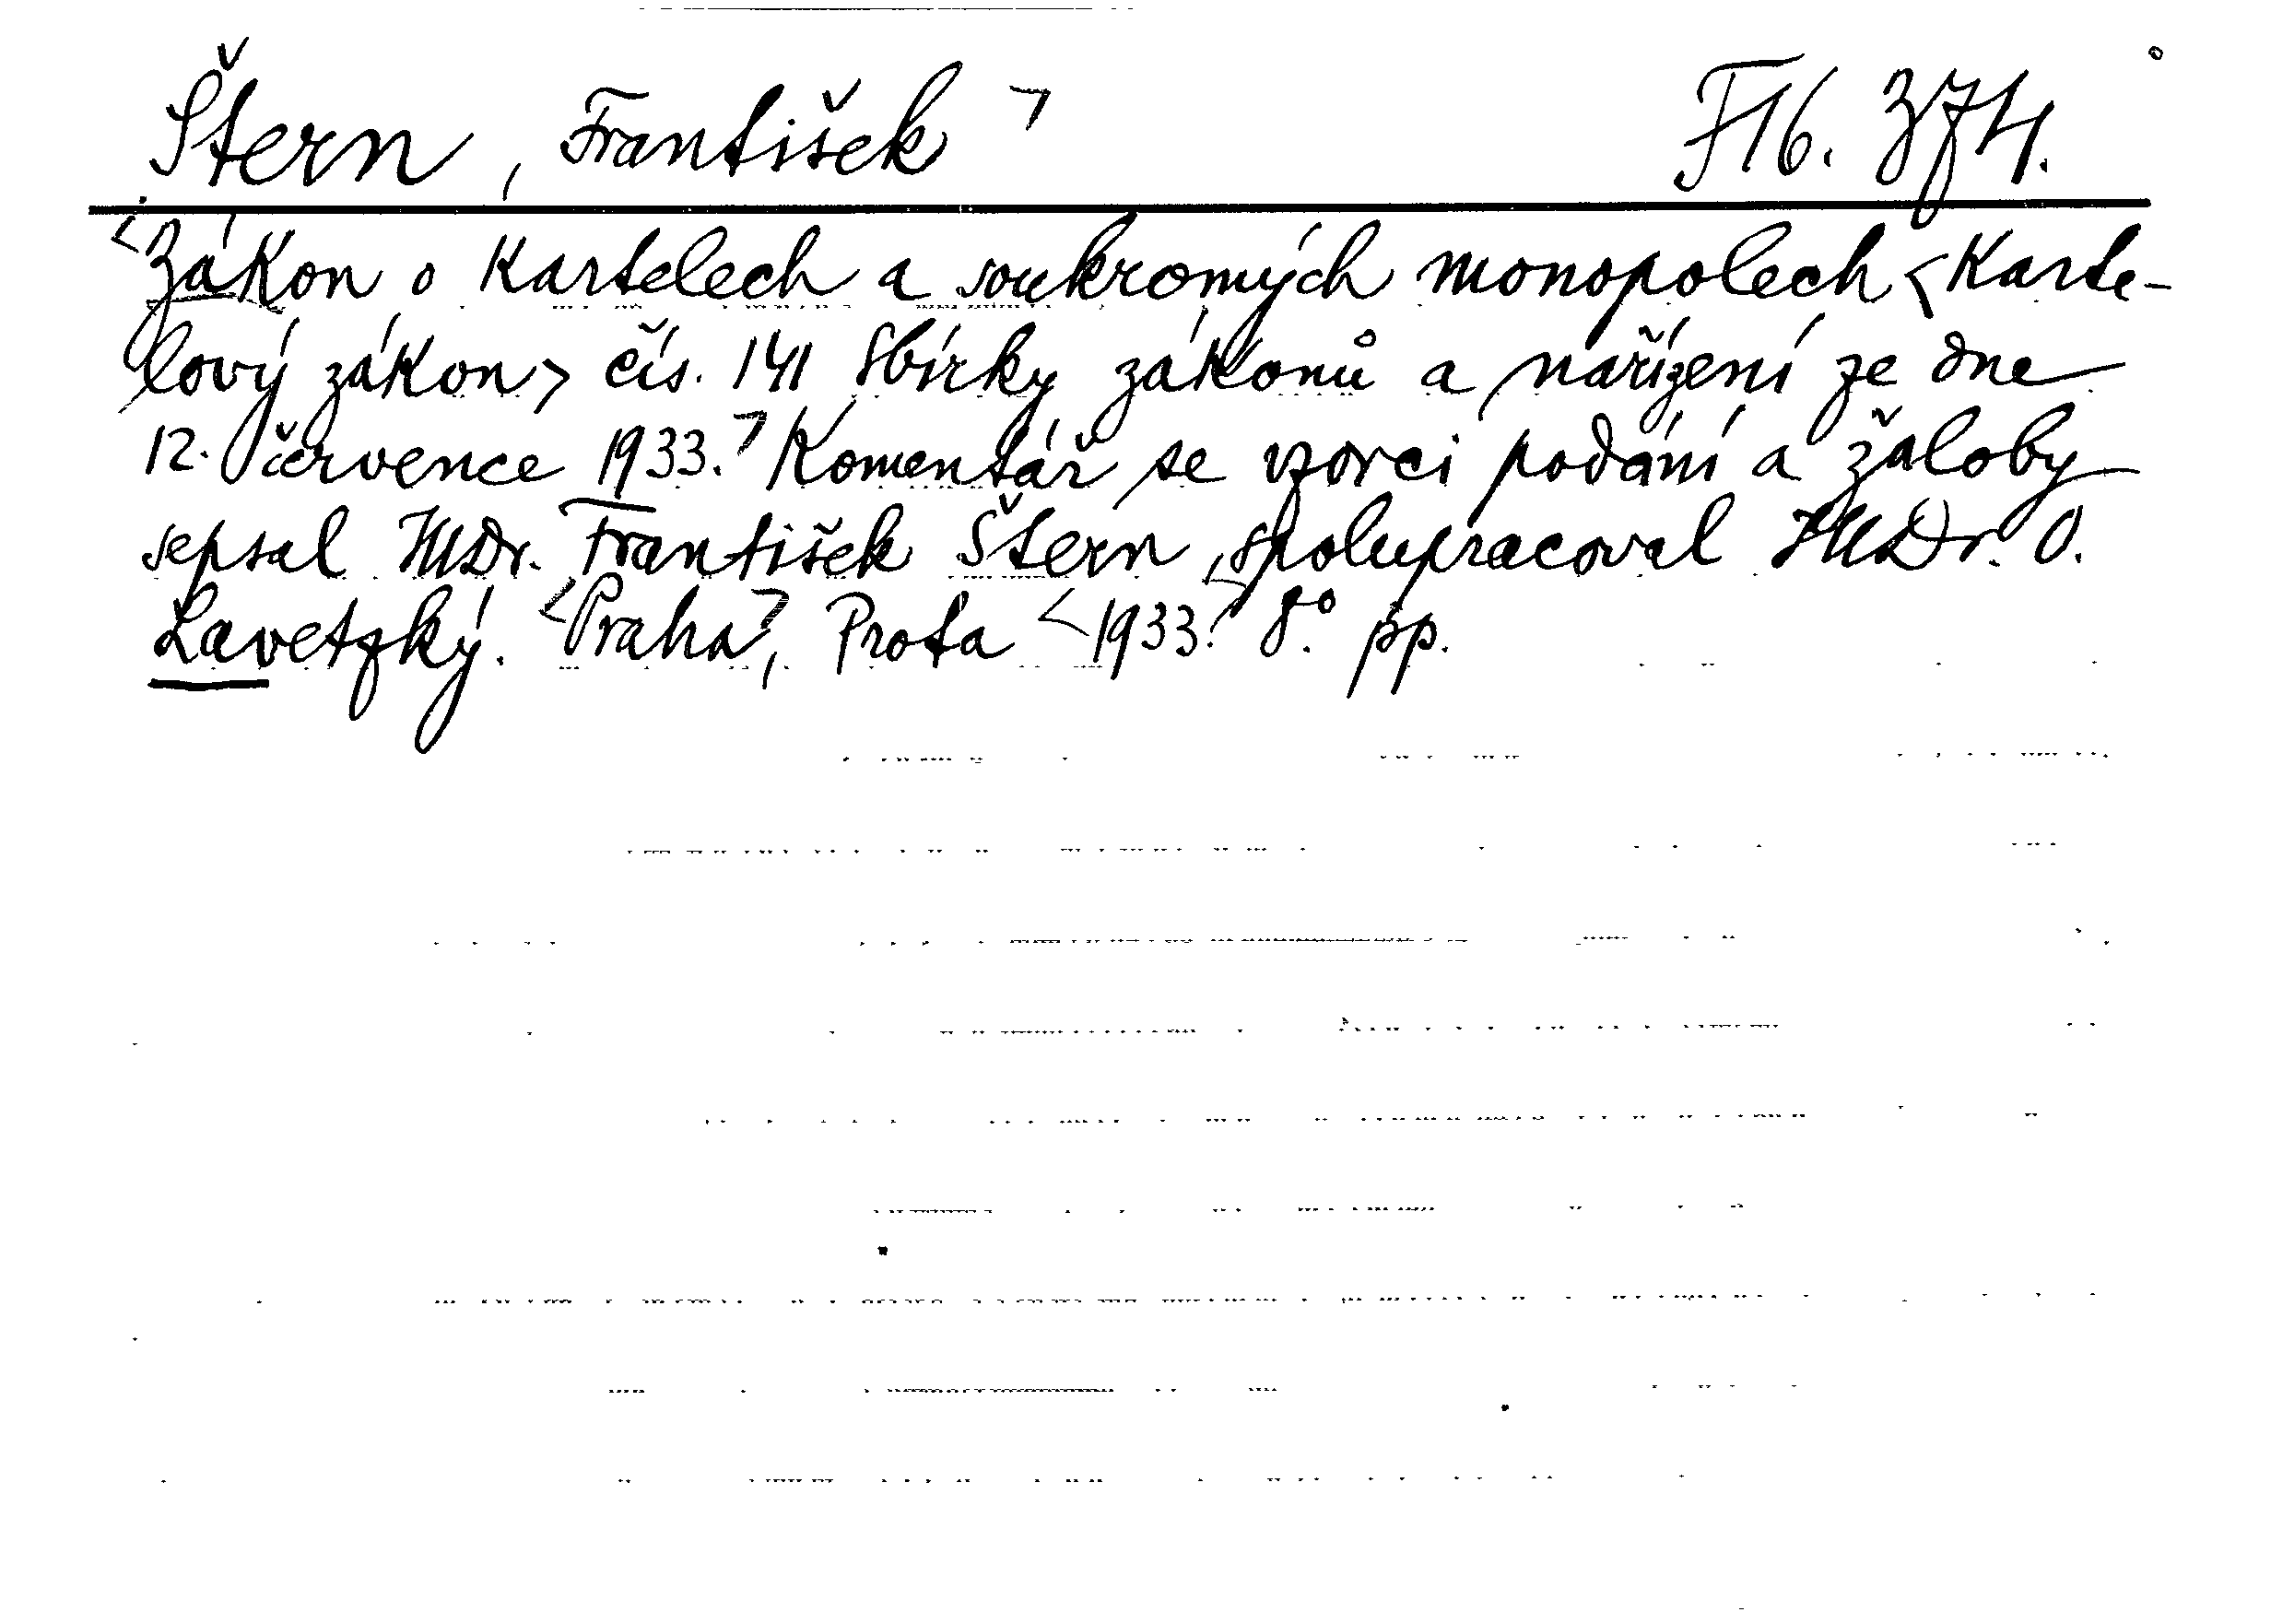 Štern, František > F16.374.
<Zákon o kartelech a soukromých monopolech <Karte-
lový zákon> čís. 141 Sbírky zákonů a nařízení ze dne
12. července 1933.> Komentář se vzorci podání a žaloby
sepsal JUDr. František Štern, spolupracoval JUDr. O.
Lavetzký. <Praha>, Prota <1933.> 8.° pp.